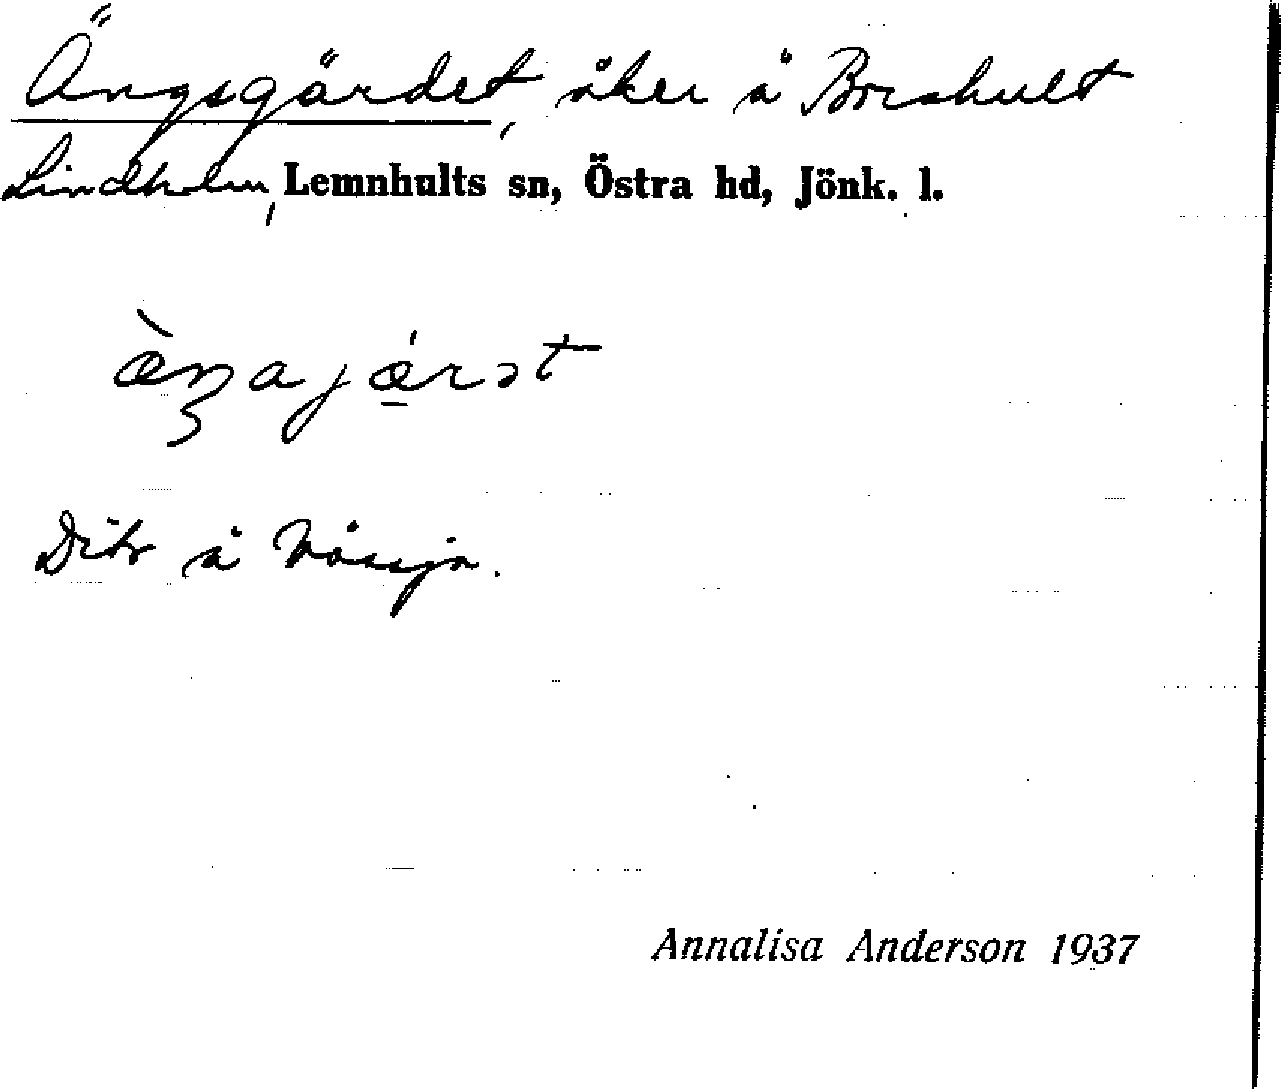 Ängsgärdet, åker å Broshult
Lindholm, Lemnhults sn, Östra hd, Jönk. l.
Dito å
Annalisa Anderson 1937